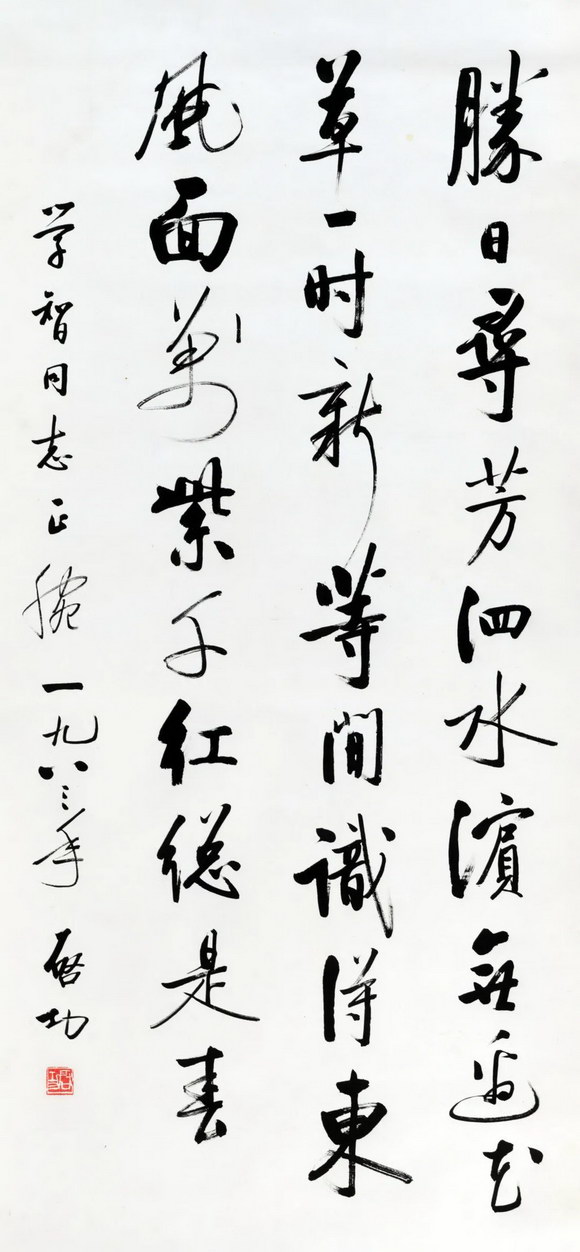 勝日尋芳泗水濱無邊花
草一时新等閒識得東
風面萬紫千紅総是春
学智同志正腕一九八三年 啓功